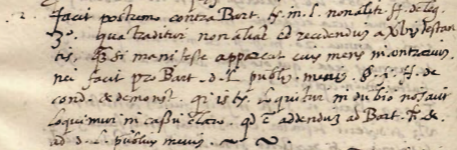 2. facit postremo contra Bart. tx. in. l. non aliter. ff. de leg.
3º. qua traditur non aliter recedendum a verbis testan
tis, q̃ si manifeste appareat eius mens in contrarium,
nec facit pro Bart. d. L. publius mevius. §. j. ff. de
cond. & demonst. qr is tx. loquitur in dubio nos aut
loquimur in casu claro. qd ē addendum ad Bart. &
ad d. L. publius mevius.